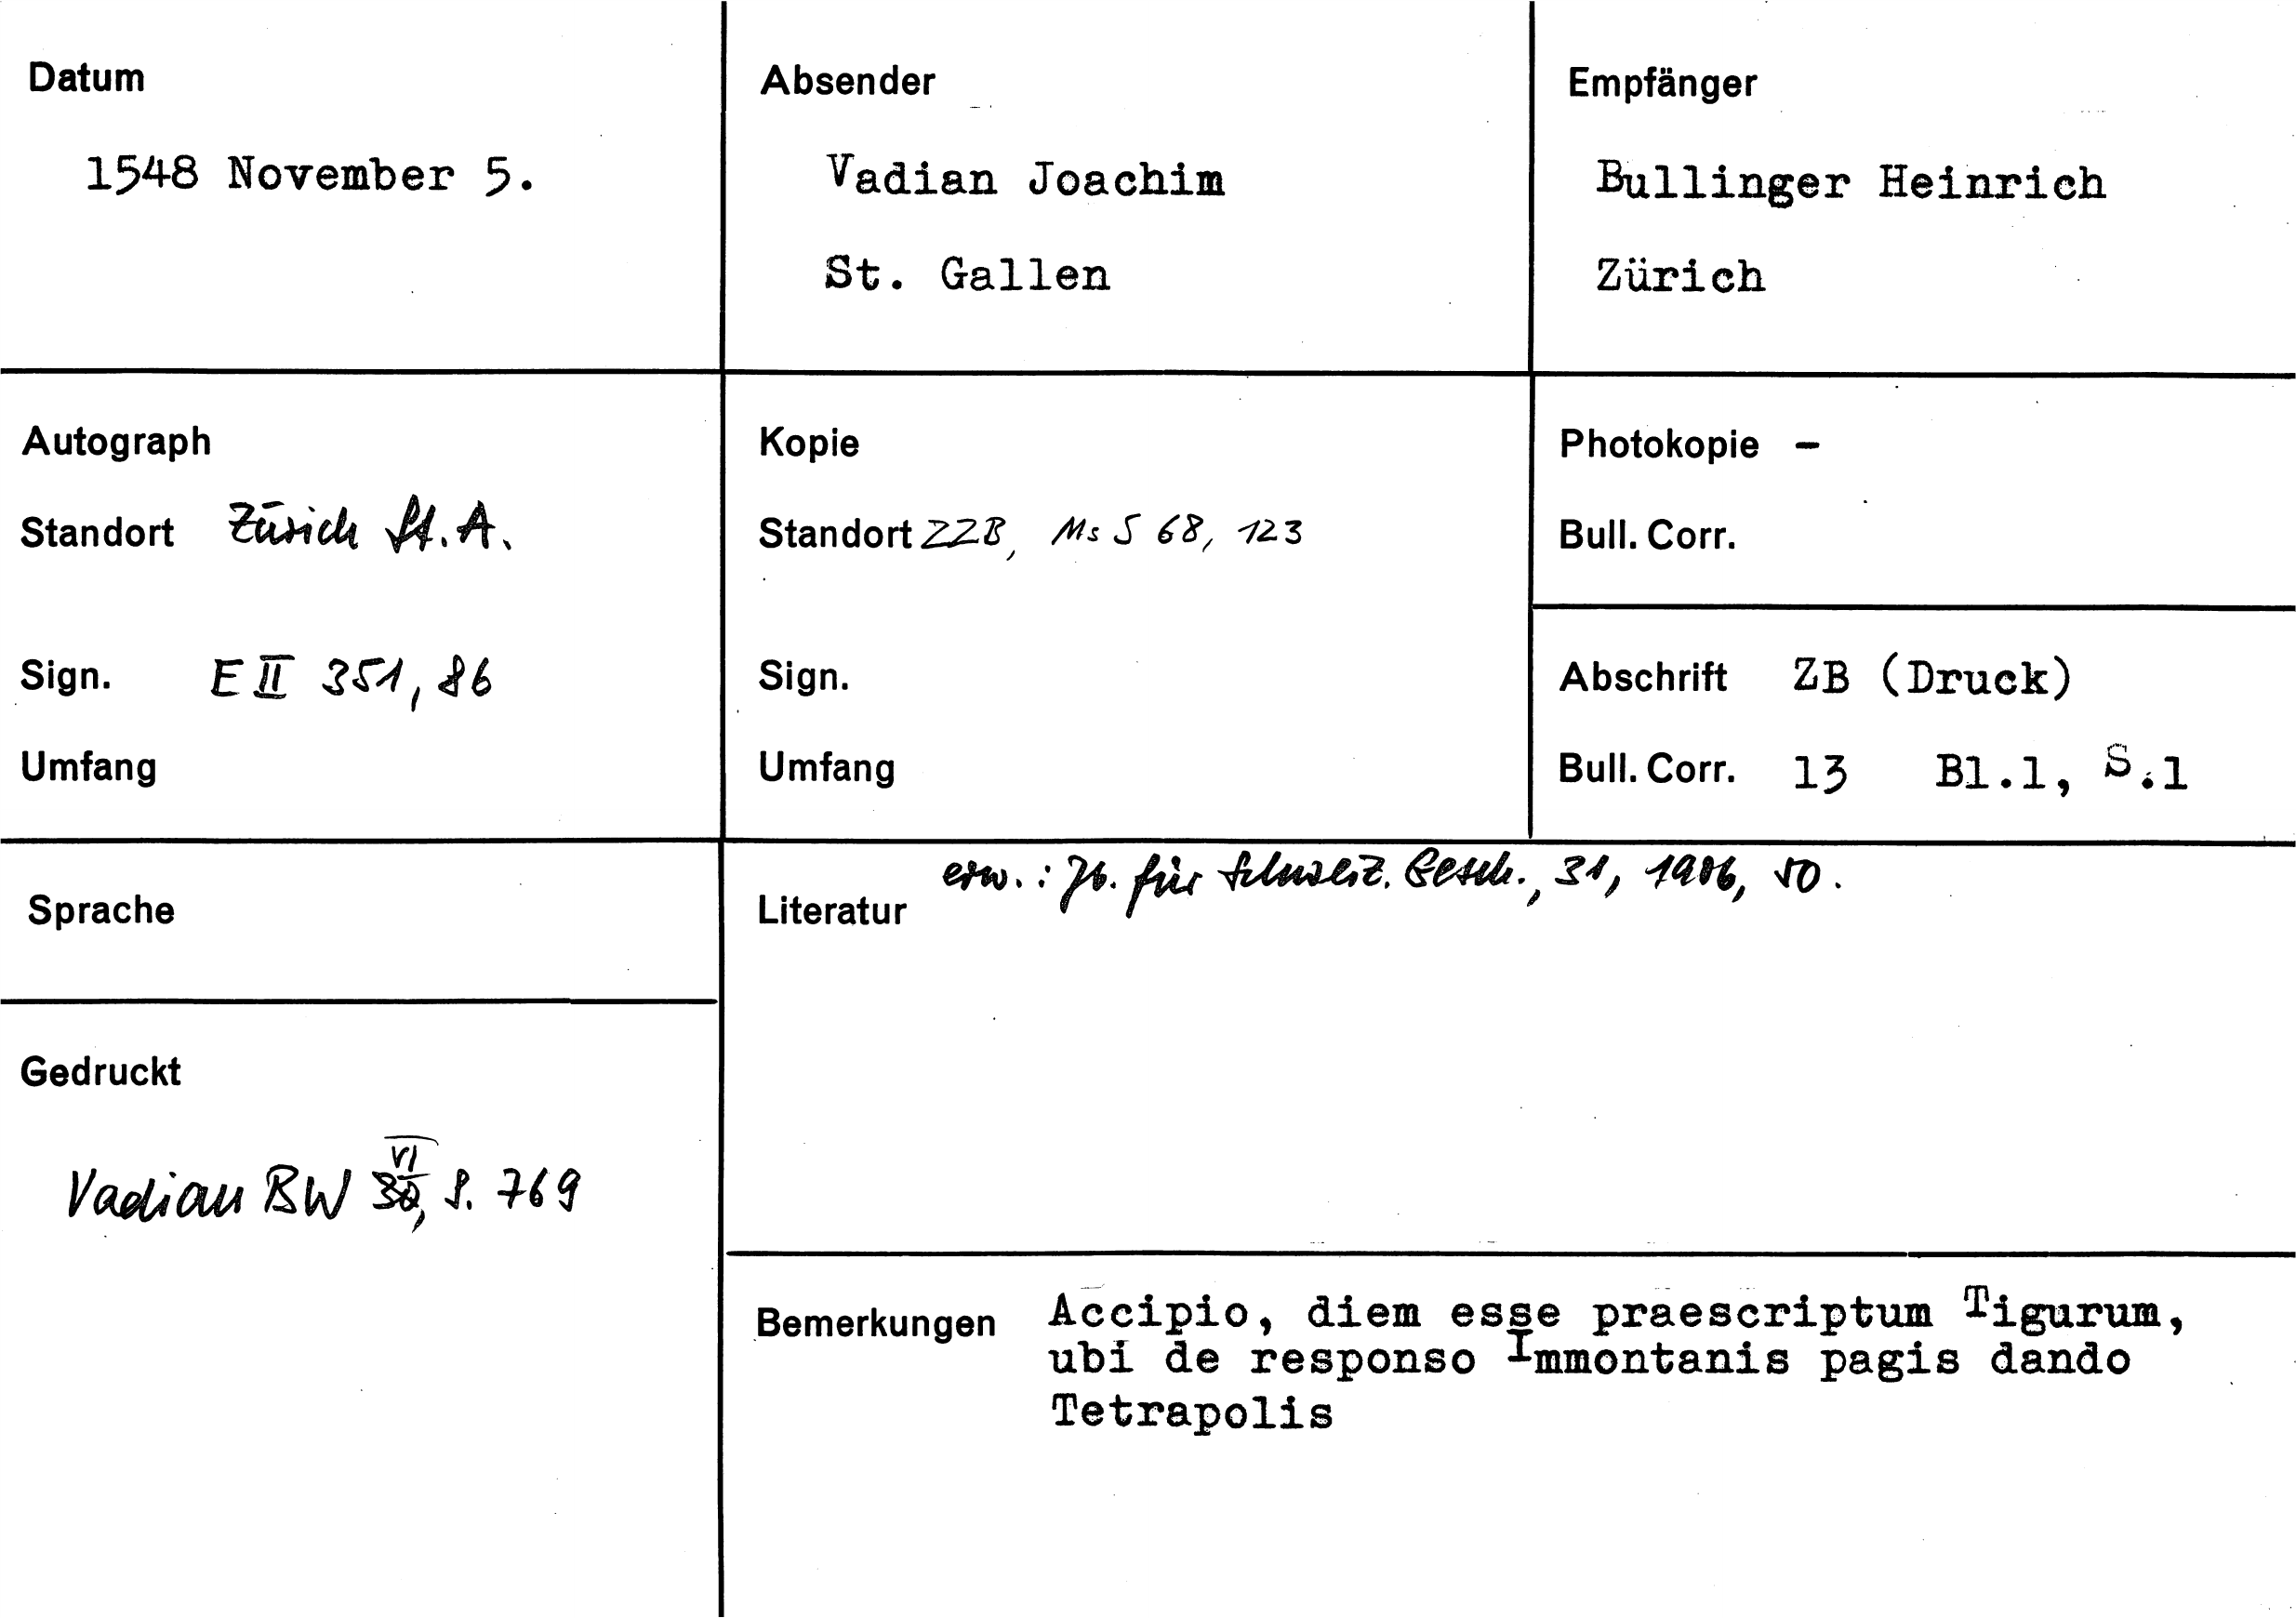 Datum
1548 November 5.
Absender
Vadian Joachim
St. Gallen
Empfänger
Bullinger Heinrich
Zürich
Autograph
Standort Zürich St.A.
Sign. E II 351, 86
Umfang
Kopie
Standort ZZB, Ms S 68, 123
Sign.
Umfang
Photokopie -
Bull. Corr.
Abschrift ZB (Druck)
Bull. Corr. 13 Bl.1, S.1
Sprache
Gedruckt
VI
Vadian BW 30, S. 769
Literatur erw.: Jb. für Schweiz. Gesch., 31, 1906, 50.
Bemerkungen Accipio, diem esse praescriptum Tigurum,
ubi de responso Immontanis pagis dando
Tetrapolis